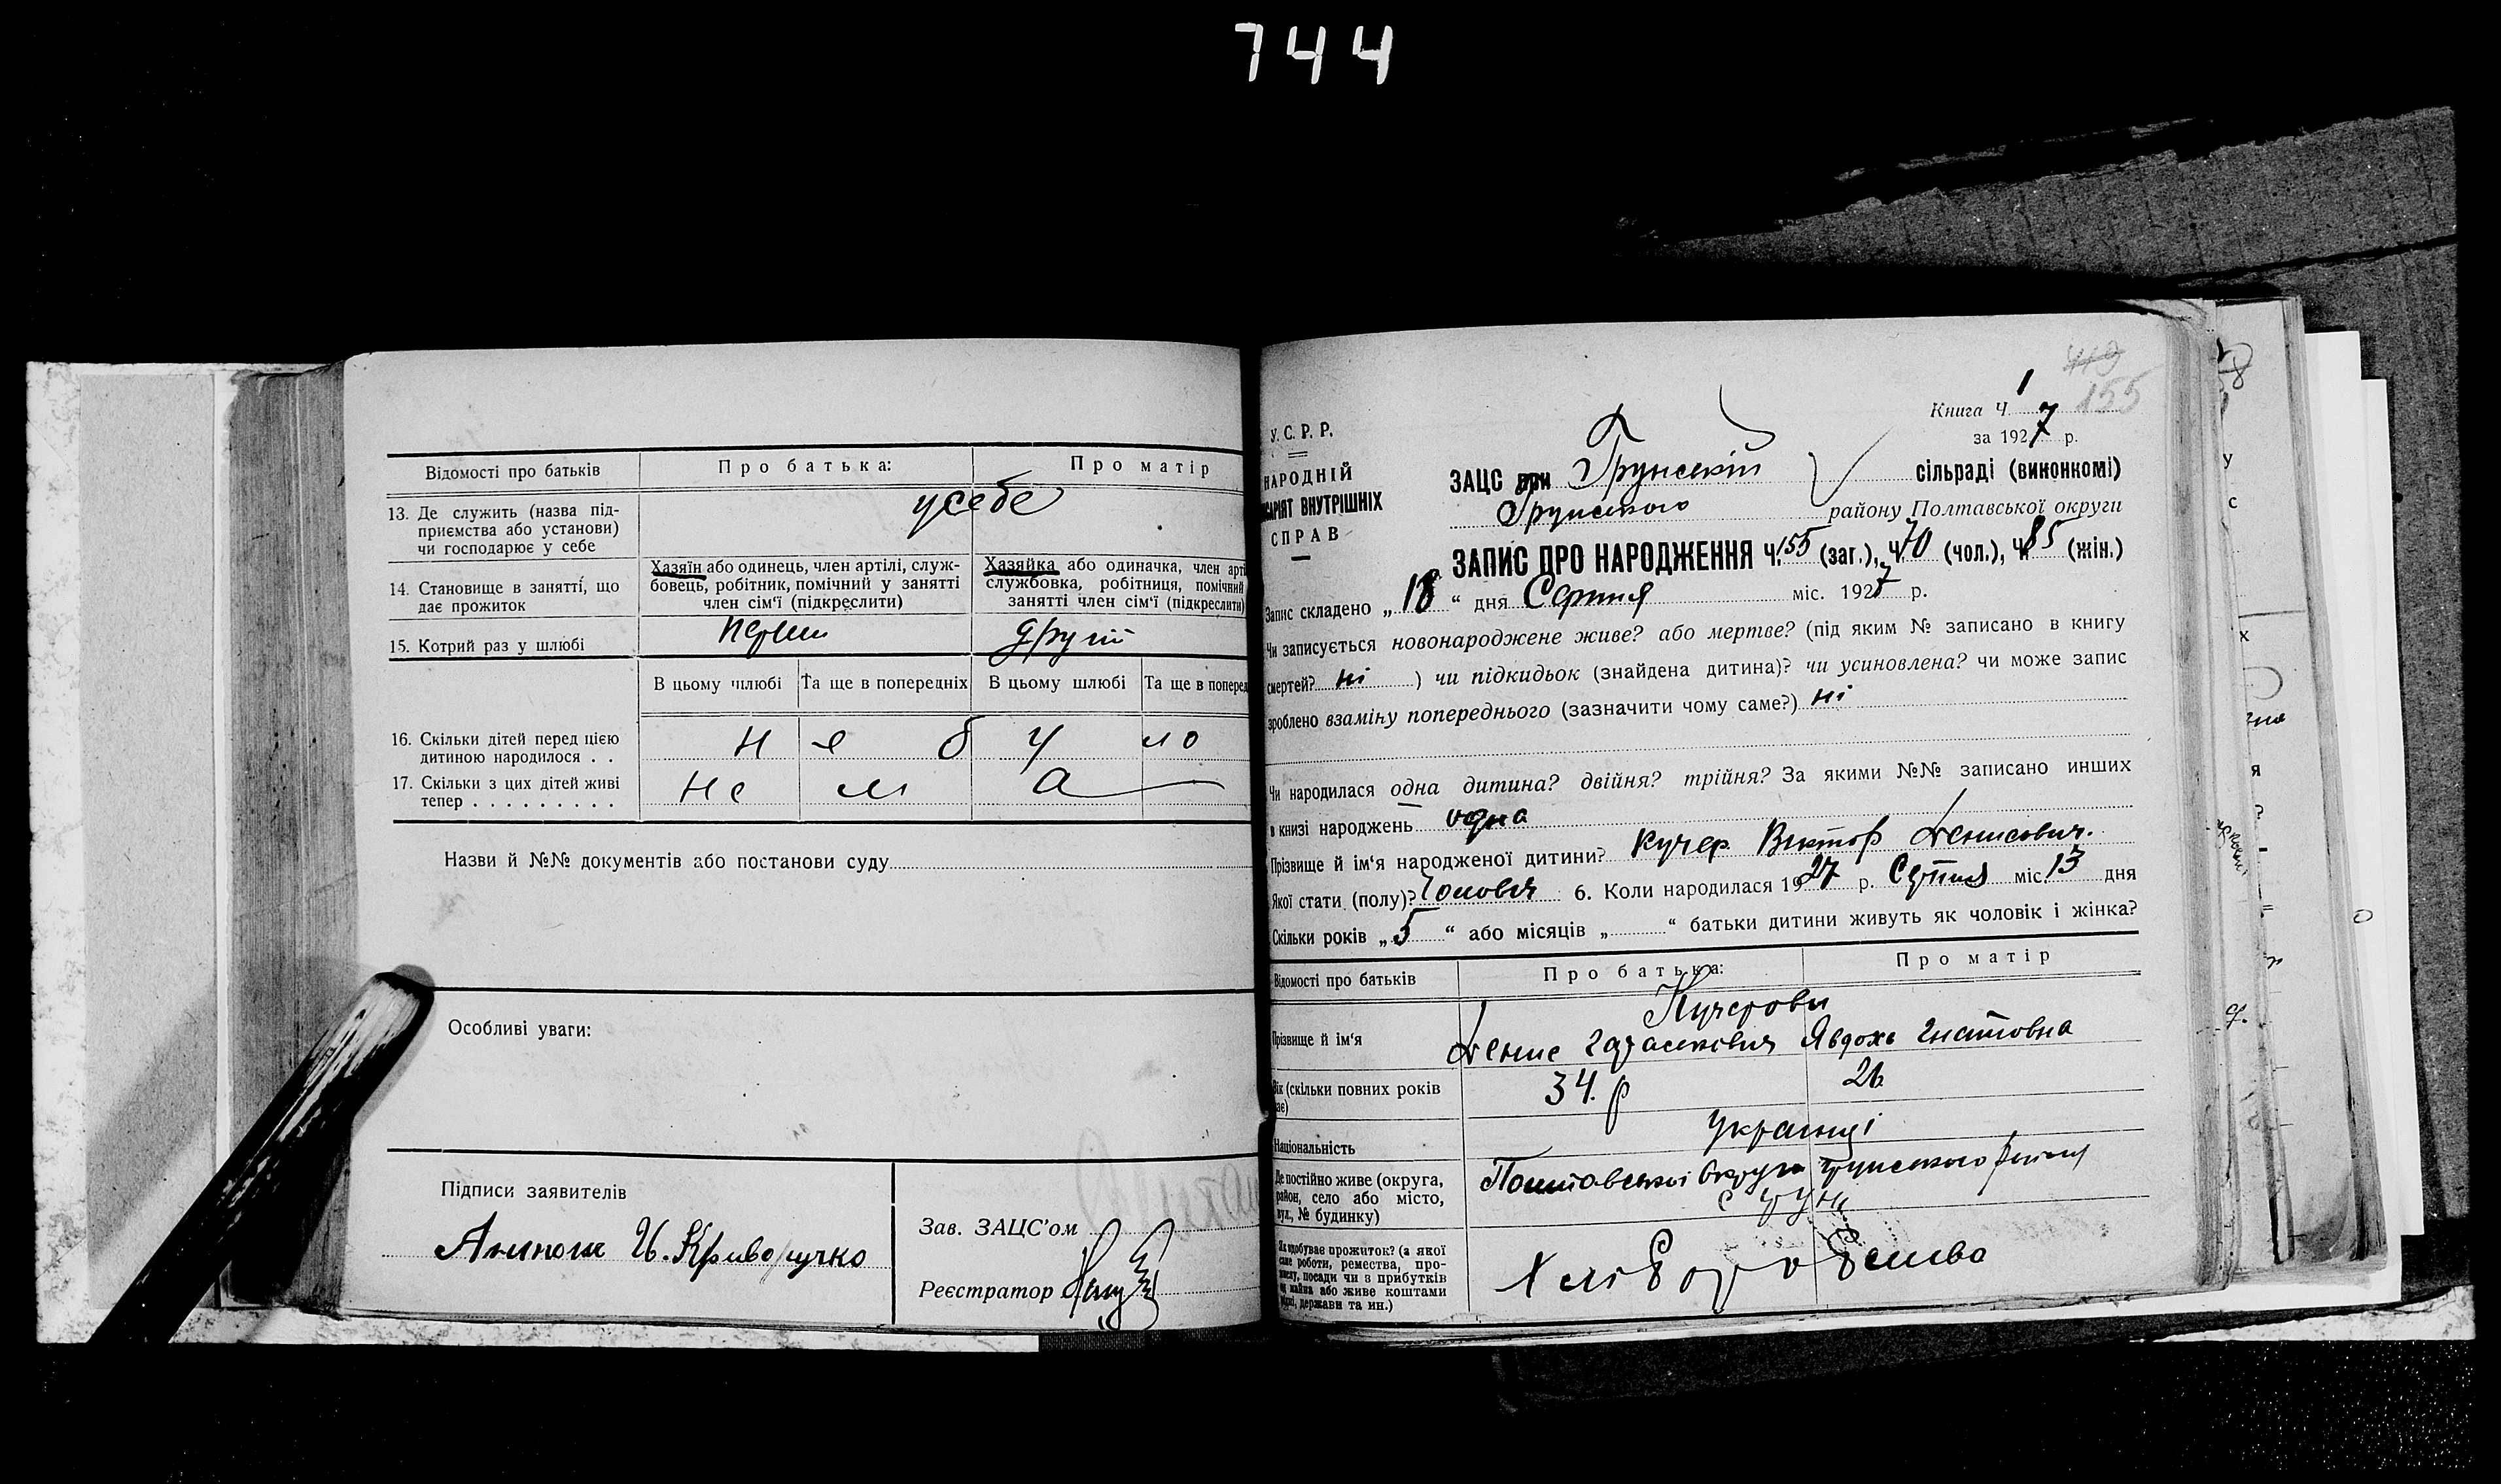 744
Відомості про батьків
Про батька:
Про матір
13. Де служить (назва під-
приємства або установи)
чи господарює у себе
усебе
14. Становище в занятті, що
дає прожиток
Хазяїн або одинець, член артілі, служ-
бовець, робітник, помічний у занятті
член сім'ї (підкреслити)
Хазяйка або одиначка, член арті
службовка, робітниця, помічний
занятті член сім'ї (підкреслити)
15. Котрий раз у шлюбі
перший
другий
В цьому шлюбі
Та ще в попередніх
В цьому шлюбі
Та ще в поперед
16. Скільки дітей перед цією
дитиною народилося . .
не було
17. Скільки з цих дітей живі
тепер . . . . . . . . .
нема
Назви й №№ документів або постанови суду
Особливі уваги:
Підписи заявителів
Криворучко
Зав. ЗАЦС'ом
Реєстратор
449
155
Книга Ч. 1
за 1927 р.
У. С. Р. Р.
НАРОДНІЙ
САРІЯТ ВНУТРІШНІХ
СПРАВ
ЗАЦС при Грунській сільраді (виконкомі)
Грунського району Полтавської округи
ЗАПИС ПРО НАРОДЖЕННЯ Ч. 155 (заг.), Ч. 70 (чол.), Ч. 85 (жін.)
Запис складено „18“ дня Серпня міс. 1927 р.
Чи записується новонароджене живе? або мертве? (під яким № записано в книгу
смертей? ні ) чи підкидьок (знайдена дитина)? чи усиновлена? чи може запис
зроблено взаміну попереднього (зазначити чому саме?) ні
Чи народилася одна дитина? двійня? трійня? За якими №№ записано инших
в книзі народжень одна
Прізвище й ім'я народженої дитини? Кучер Виктор Денисович.
Якої стати (полу)? 6. Коли народилася 1927 р. Серпня міс. 13 дня
Скільки років „5“ або місяців „ “ батьки дитини живуть як чоловік і жінка?
Відомості про батьків
Про батька:
Про матір
Прізвище й ім'я
Кучерови
Денис
Явдоха Гнатовна
Вік (скільки повних років
має)
34. р
26
Національність
Українці
Де постійно живе (округа,
район, село або місто,
вул., № будинку)
Полтавської Округи Грунського району
с Грунь
Як здобуває прожиток? (з якої
саме роботи, ремества, про-
мислу, посади чи з прибутків
од майна або живе коштами
рідні, держави та ин.)
Хліборобства